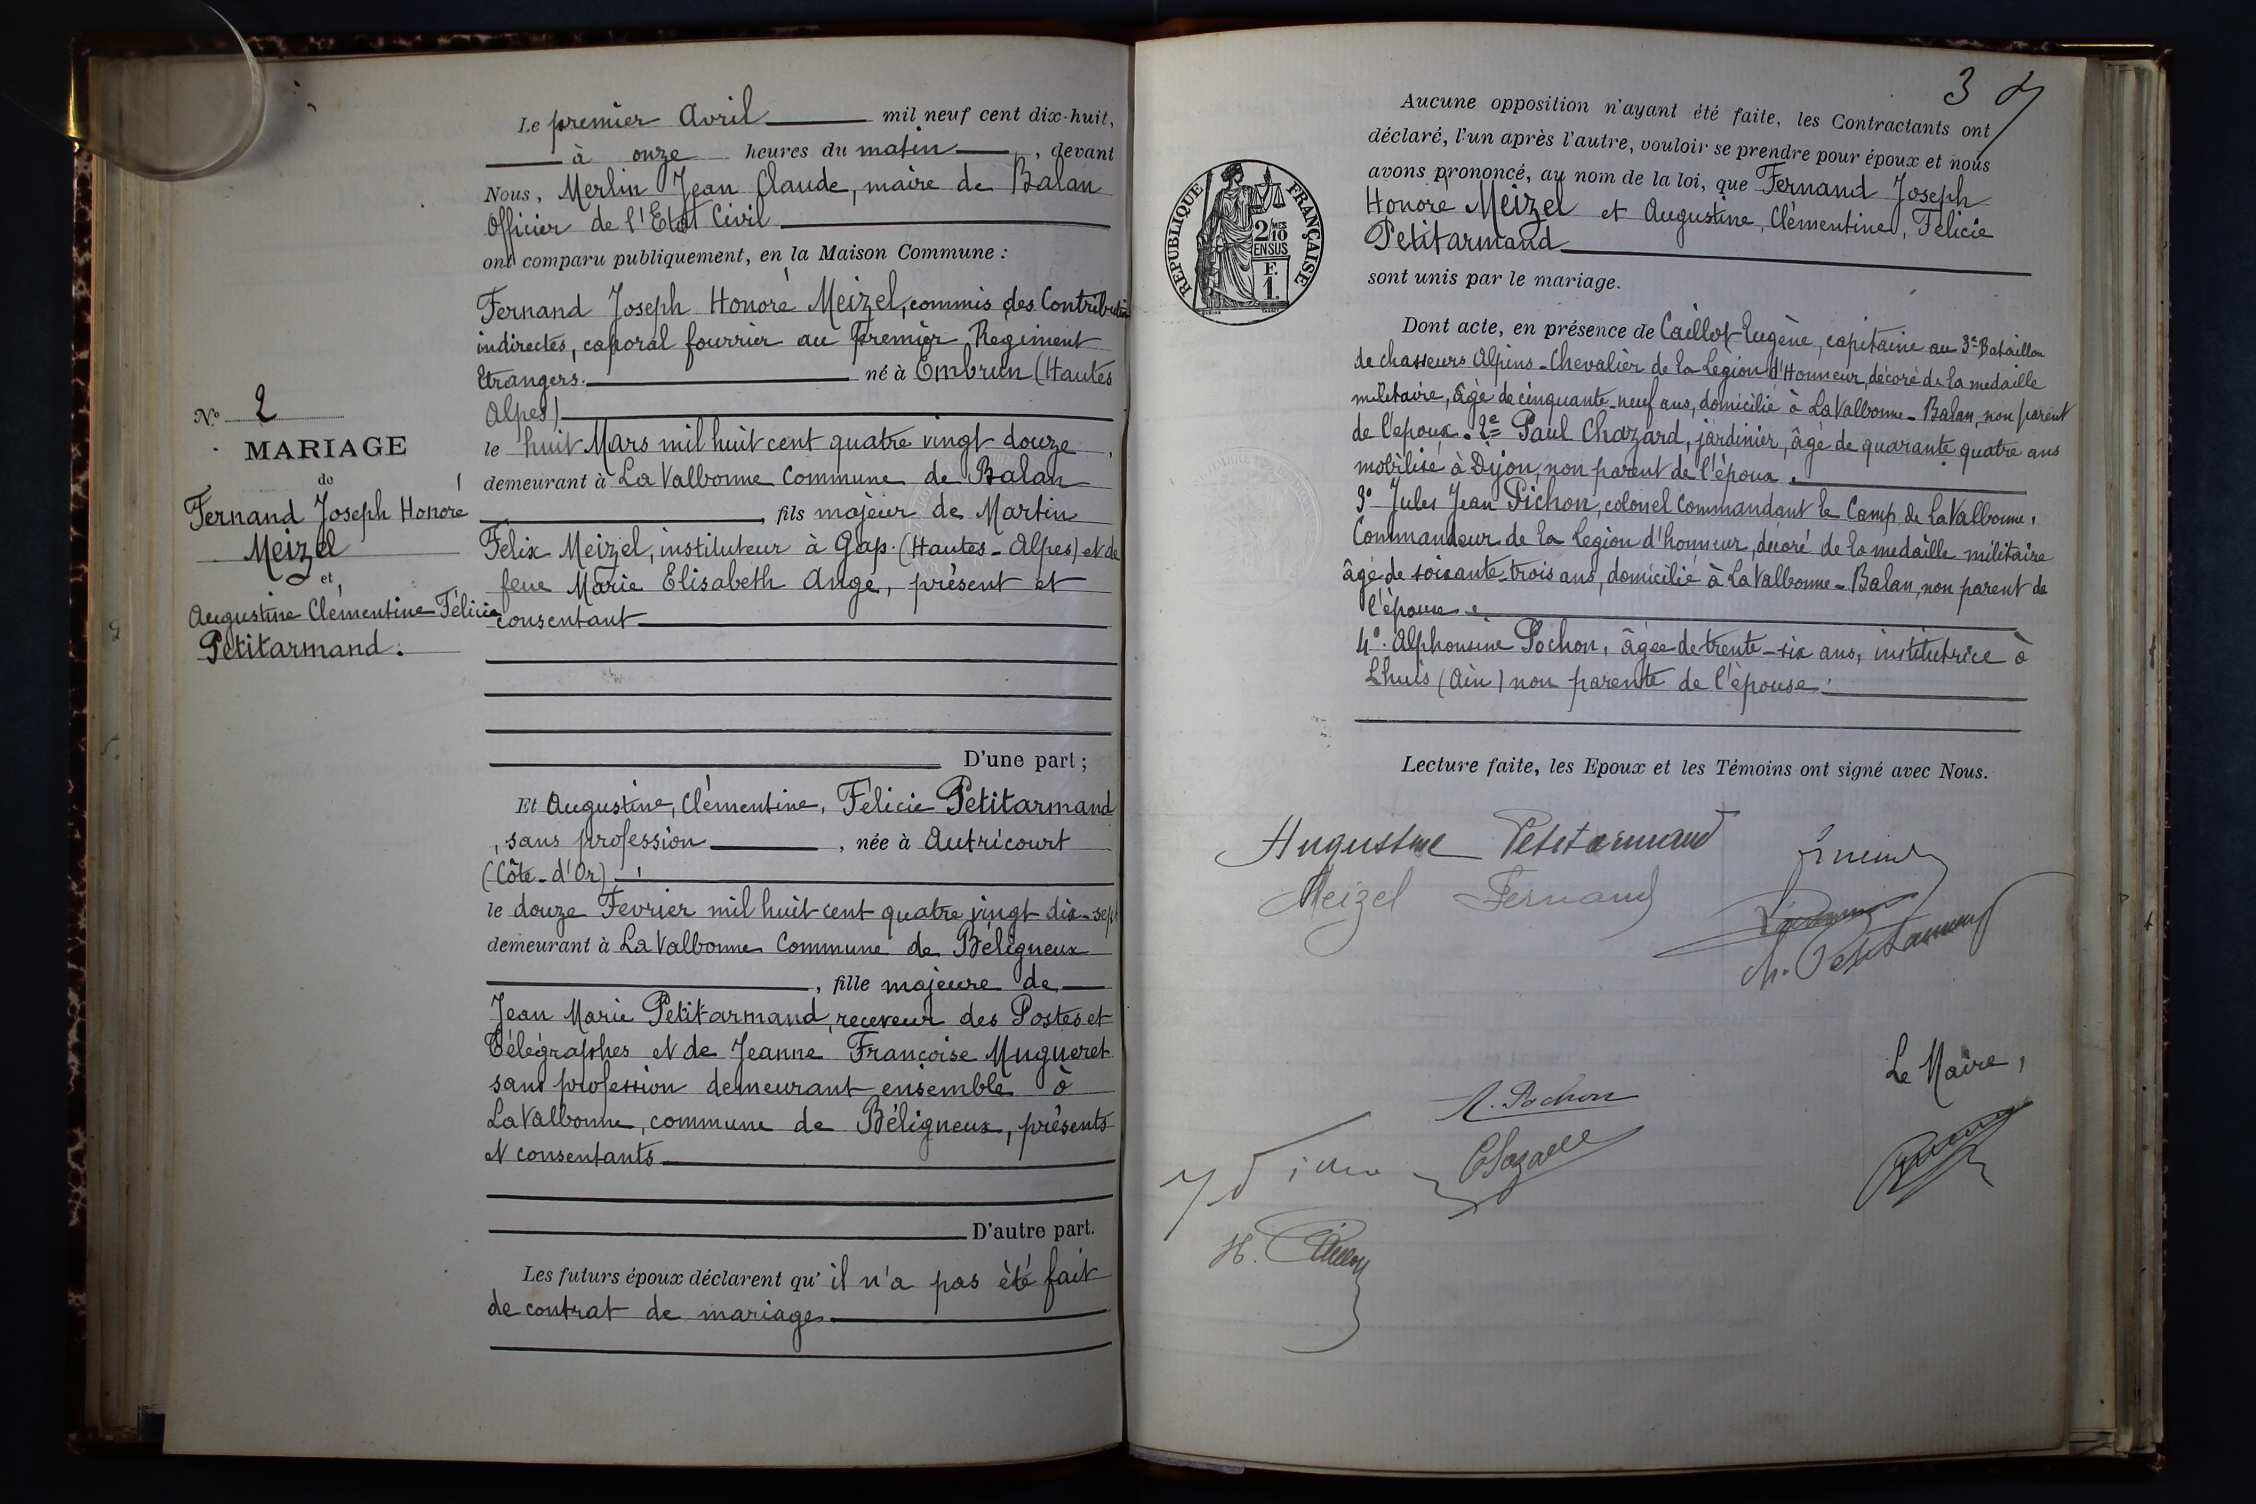 Le premier Avril mil neuf cent dix-huit,
à onze heures du matin, devant
Nous, Merlin Jean Claude, maire de Balan
Officier de l'Etat Civil
ont comparu publiquement, en la Maison Commune :
Fernand Joseph Honoré Meizel, commis des Contributions
indirectes, caporal fourrier au Premier Régiment
Etrangers. né à Embrun (Hautes
Alpes)
le huit Mars mil huit cent quatre vingt douze,
demeurant à La Valbonne Commune de Balan
, fils majeur de Martin
Felix Meizel, instituteur à Gap. (Hautes-Alpes) et de
feue Marie Elisabeth Ange, présent et
consentant
D'une part ;
Et Augustine, Clémentine, Félicie Petitarmand
, sans profession, née à Autricourt
(Côte-d'Or)
le douze Fevrier mil huit cent quatre vingt dix-sept
demeurant à La Valbonne Commune de Béligneux
, fille majeure de
Jean Marie Petitarmand, receveur des Postes et
Télégraphes et de Jeanne Françoise Mugueret
sans profession demeurant ensemble à
La Valbonne, commune de Béligneux, présents
et consentants
D'autre part.
Les futurs époux déclarent qu'il n'a pas été fait
de contrat de mariage
N° 2
MARIAGE
de
Fernand Joseph Honoré
Meizel
et
Augustine Clémentine Félicie
Petitarmand.
3
Aucune opposition n'ayant été faite, les Contractants ont
déclaré, l'un après l'autre, vouloir se prendre pour époux et nous
avons prononcé, au nom de la loi, que Fernand Joseph
Honoré Meizel et Augustine, Clémentine, Félicie
Petitarmand
sont unis par le mariage.
REPUBLIQUE FRANÇAISE
2 MES
10
EN SUS
F.
1.
Dont acte, en présence de Caillot Eugène, capitaine au 3e Bataillon
de chasseurs Alpins - Chevalier de la Legion d'Honneur, décoré de la medaille
militaire, âgé de cinquante-neuf ans, domicilié à La Valbonne - Balan, non parent
de l'époux. 2e Paul Chazard, jardinier, âgé de quarante quatre ans
mobilisé à Dijon, non parent de l'époux.
3° Jules Jean Pichon, colonel commandant le Camp de la Valbonne,
Commandeur de la Legion d'honneur, décoré de la medaille militaire
âgé de soixante-trois ans, domicilié à La Valbonne - Balan, non parent de
l'épouse.
4°. Alphonsine Pochon, âgée de trente-six ans, institutrice à
Lhuis (Ain) non parente de l'épouse.
Lecture faite, les Epoux et les Témoins ont signé avec Nous.
Augustine Petitarmand
Meizel Fernand
Petitarmand
A. Pochon
Le Maire,
Chazard